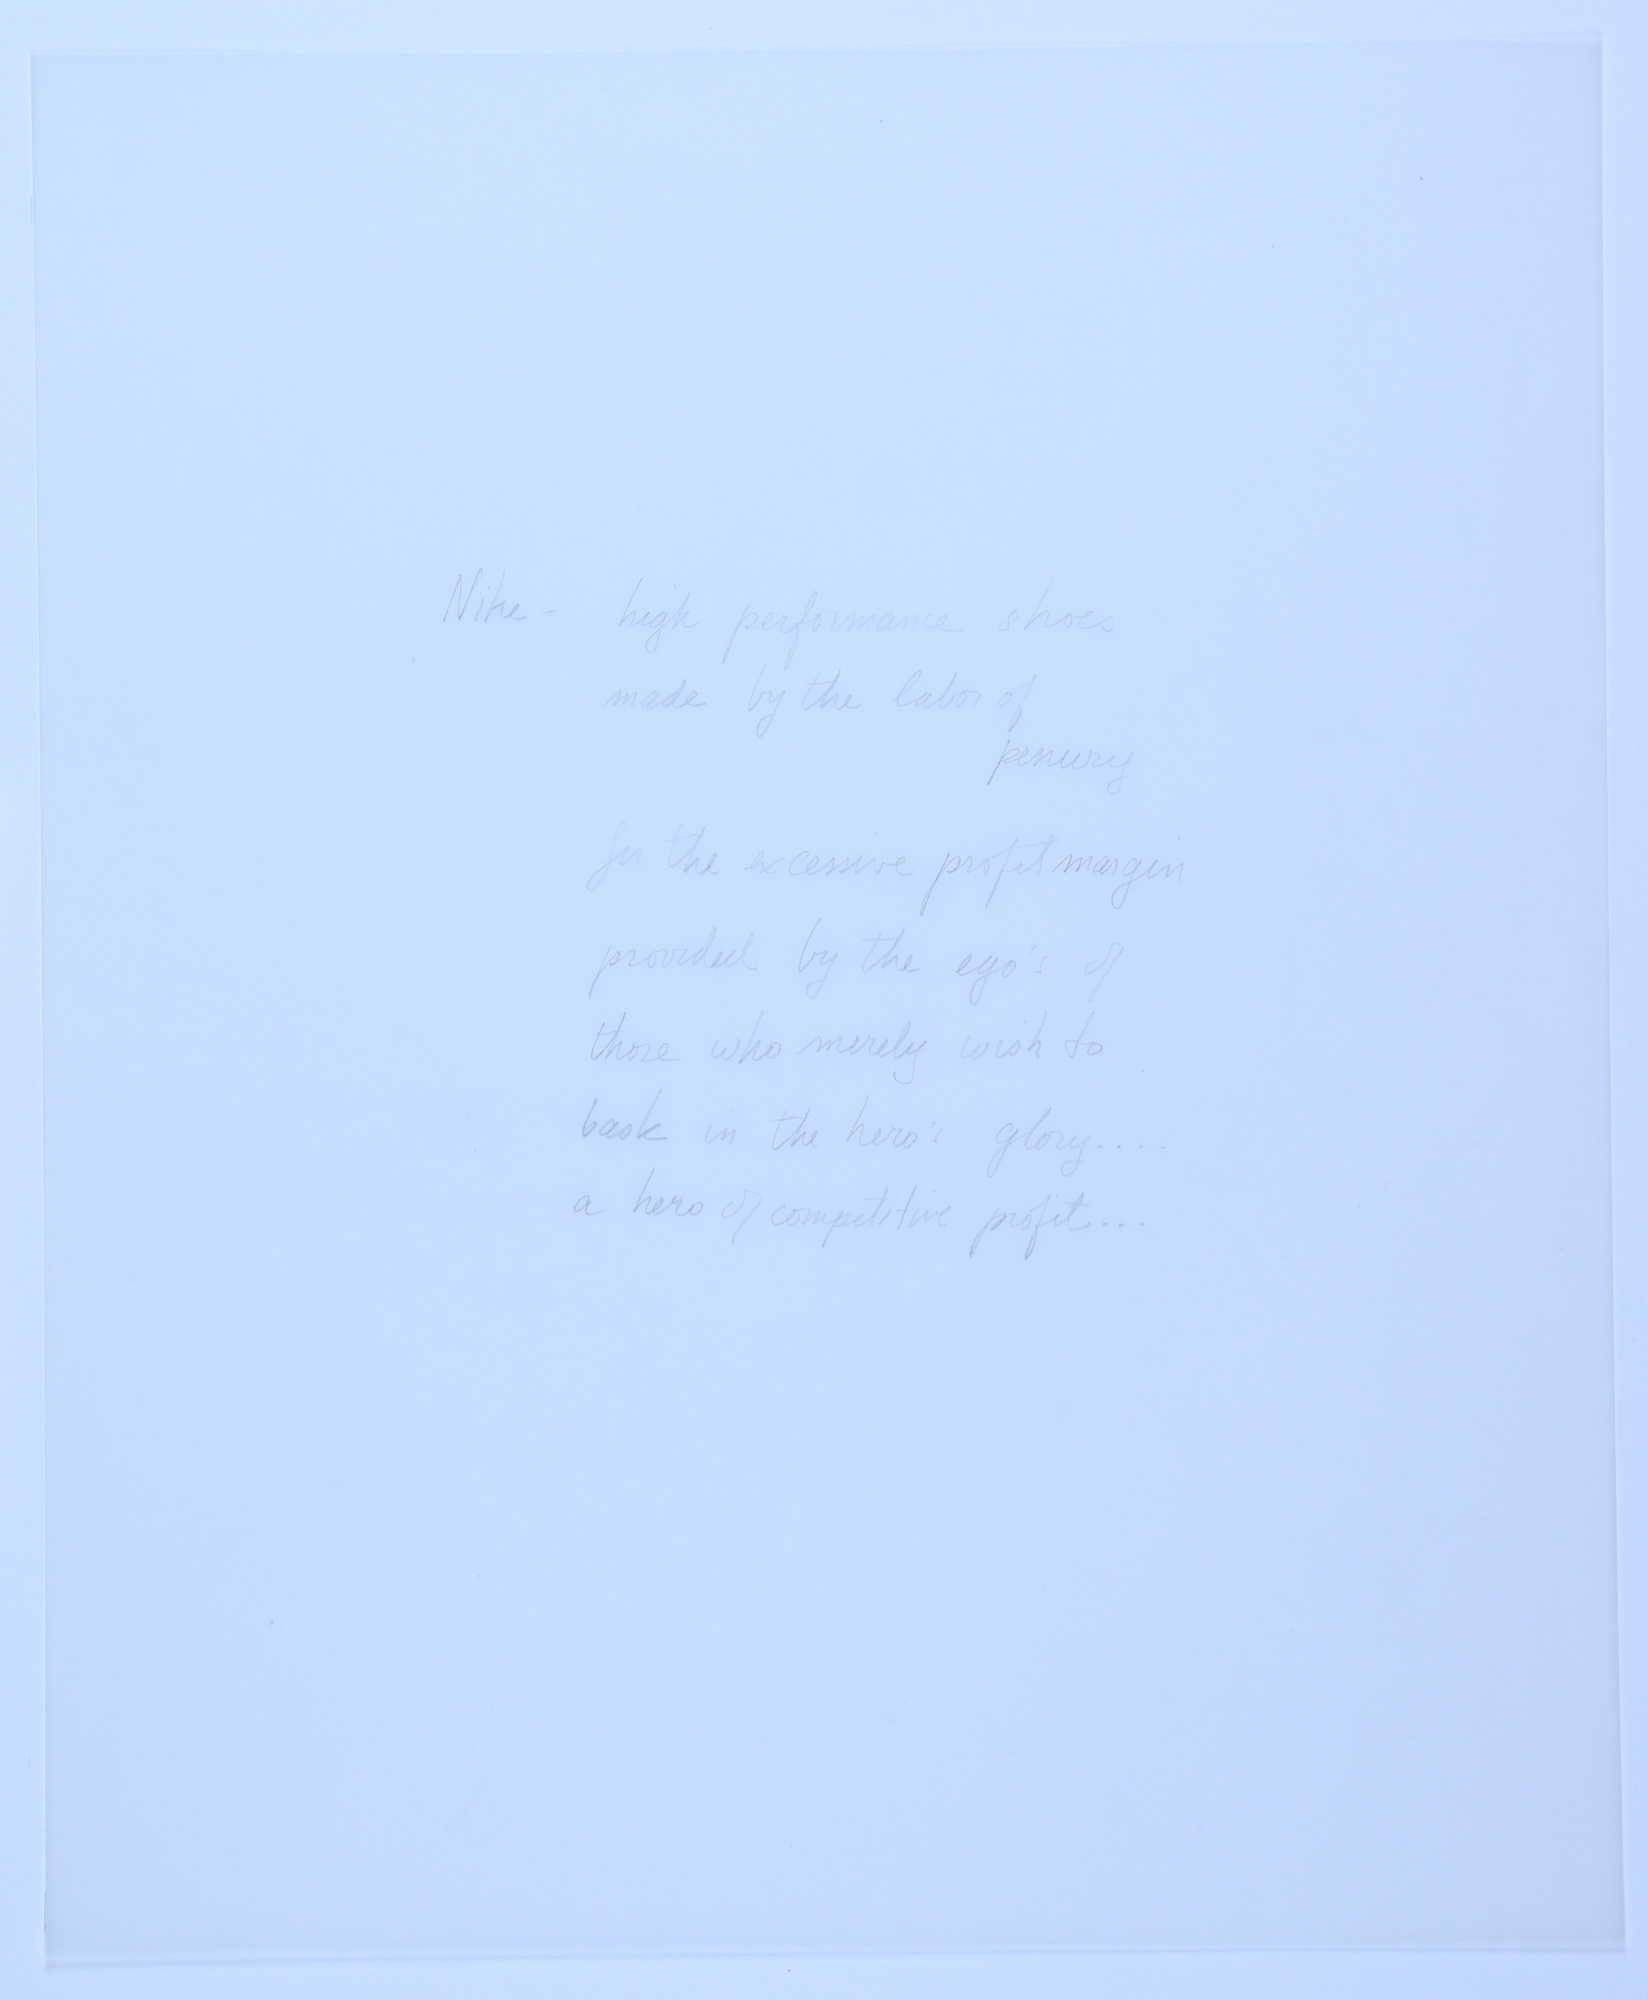 Nike - high performance shoes
made by the labor of
penury
for the excessive profit margin
provided by the ego's of
those who merely wish to
bask in the hero's glory....
a hero of competitive profit...